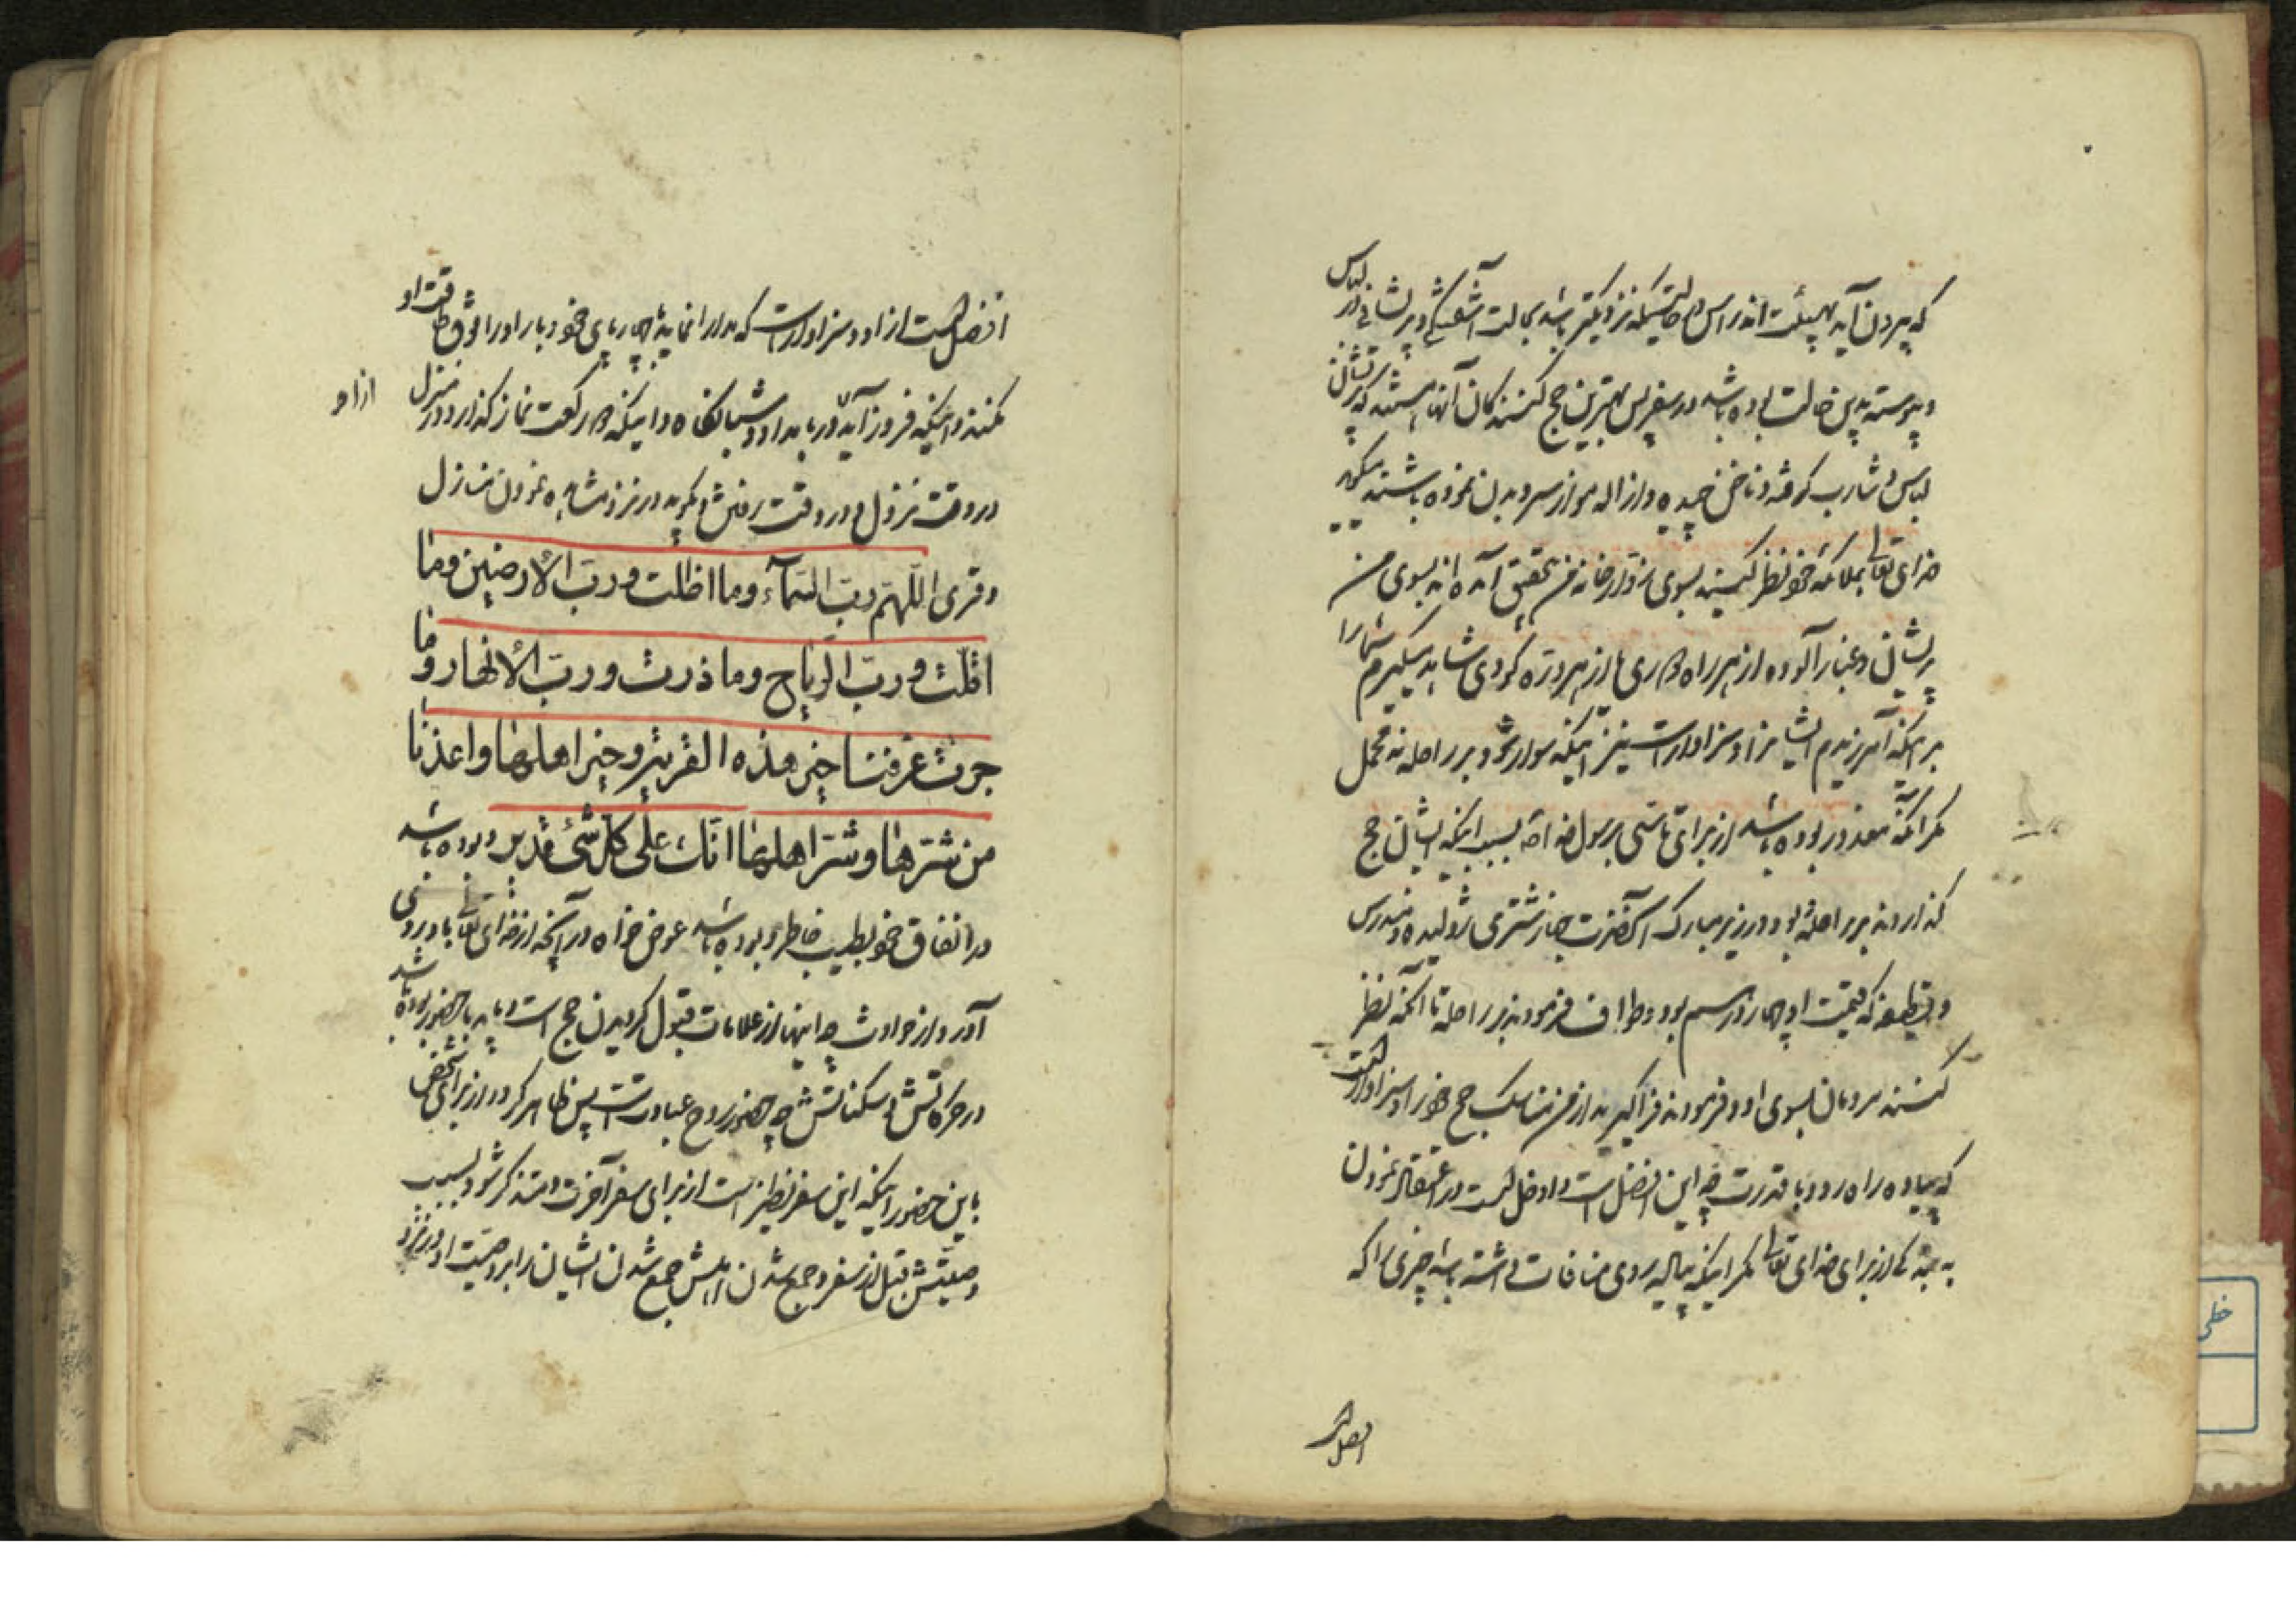 که بیرون آید بهیئت اندراس و حالتیکه نزدیکتر باشد بحالت آشفتگی و پریشانی در لباس
و پیوسته بدین حالت بوده باشد در سفر پس بهترین حج کنندکان آنها هستند که
لباس و شارب کرفته و ناخن چیده و ازاله مو از سر و بدن نموده باشند میکوید
خدای تعالی بملائکه خود نظر کنید بسوی زوار خانه من بتحقیق آمده اند بسوی من
پریشان و غبار آلوده از هر راه دوری و از هر دره کودی شاهد میکیرم شما را
بر اینکه آمرزیدم ایشانرا و سزاوار است نیز اینکه سوار شود بر راحله نه محمل
مکر آنکه معذور بوده باشد از برای تاسی برسول خدا چه بسبب اینکه ایشان حج
کذاردند بر راحله و بود در زیر مبارک آنحضرت جهاز شتری ژولیده و مندرس
و قطیفه که قیمت او چهار درهم بود و طواف فرمودند بر راحله تا آنکه نظر
کنند مردمان بسوی او و فرمودند فرا کیرید از من مناسک حج خود را و سزاوار است
که پیاده راه رود با قدرت چه این افضل است و ادخل است در انقیاد نمودن
به بندکی از برای خدای تعالی مکر اینکه پیاده روی منافات داشته باشد چیزی را که
افضل است
افضل است از او و سزاوار است که مدارا نماید با چهارپای خود و بار او را فوق طاقت او
نکنند و اینکه فرود آید در بامداد و شبانکاه و اینکه دو رکعت نماز کذارد در منزل
از او
در وقت نزول و در وقت رفتنش و بکوید در نزد مشاهده نمودن منازل
و قری اللّهم ربّ السّمآء وما اظلت و ربّ الأرضین وما
اقلّت و ربّ الرّیاح وما ذرت و ربّ الأنهار وما
جرت عرّفنا خیر هذه القریة وخیر اهلها واعذنا
من شرّها و شرّ اهلها انّك علی کل شیء قدیر و بوده باشد
در انفاق خود بطیب خاطر و بوده باشد عوض خواه در آنچه از خدای تعالی باو رو
آورد از حوادث چه اینها از علامات قبول کردیدن حج است و باید با حضور بوده باشد
در حرکاتش و سکناتش چه حضور روح عبادت است پس ظاهر کردد از برای شخص
باین حضور اینکه این سفر نظیر است از برای سفر آخرت و متذکر شود بسبب
وصیتش قبل از سفر و جمع شدن اهلش جمع شدن ایشان را بر وصیت او در نزد